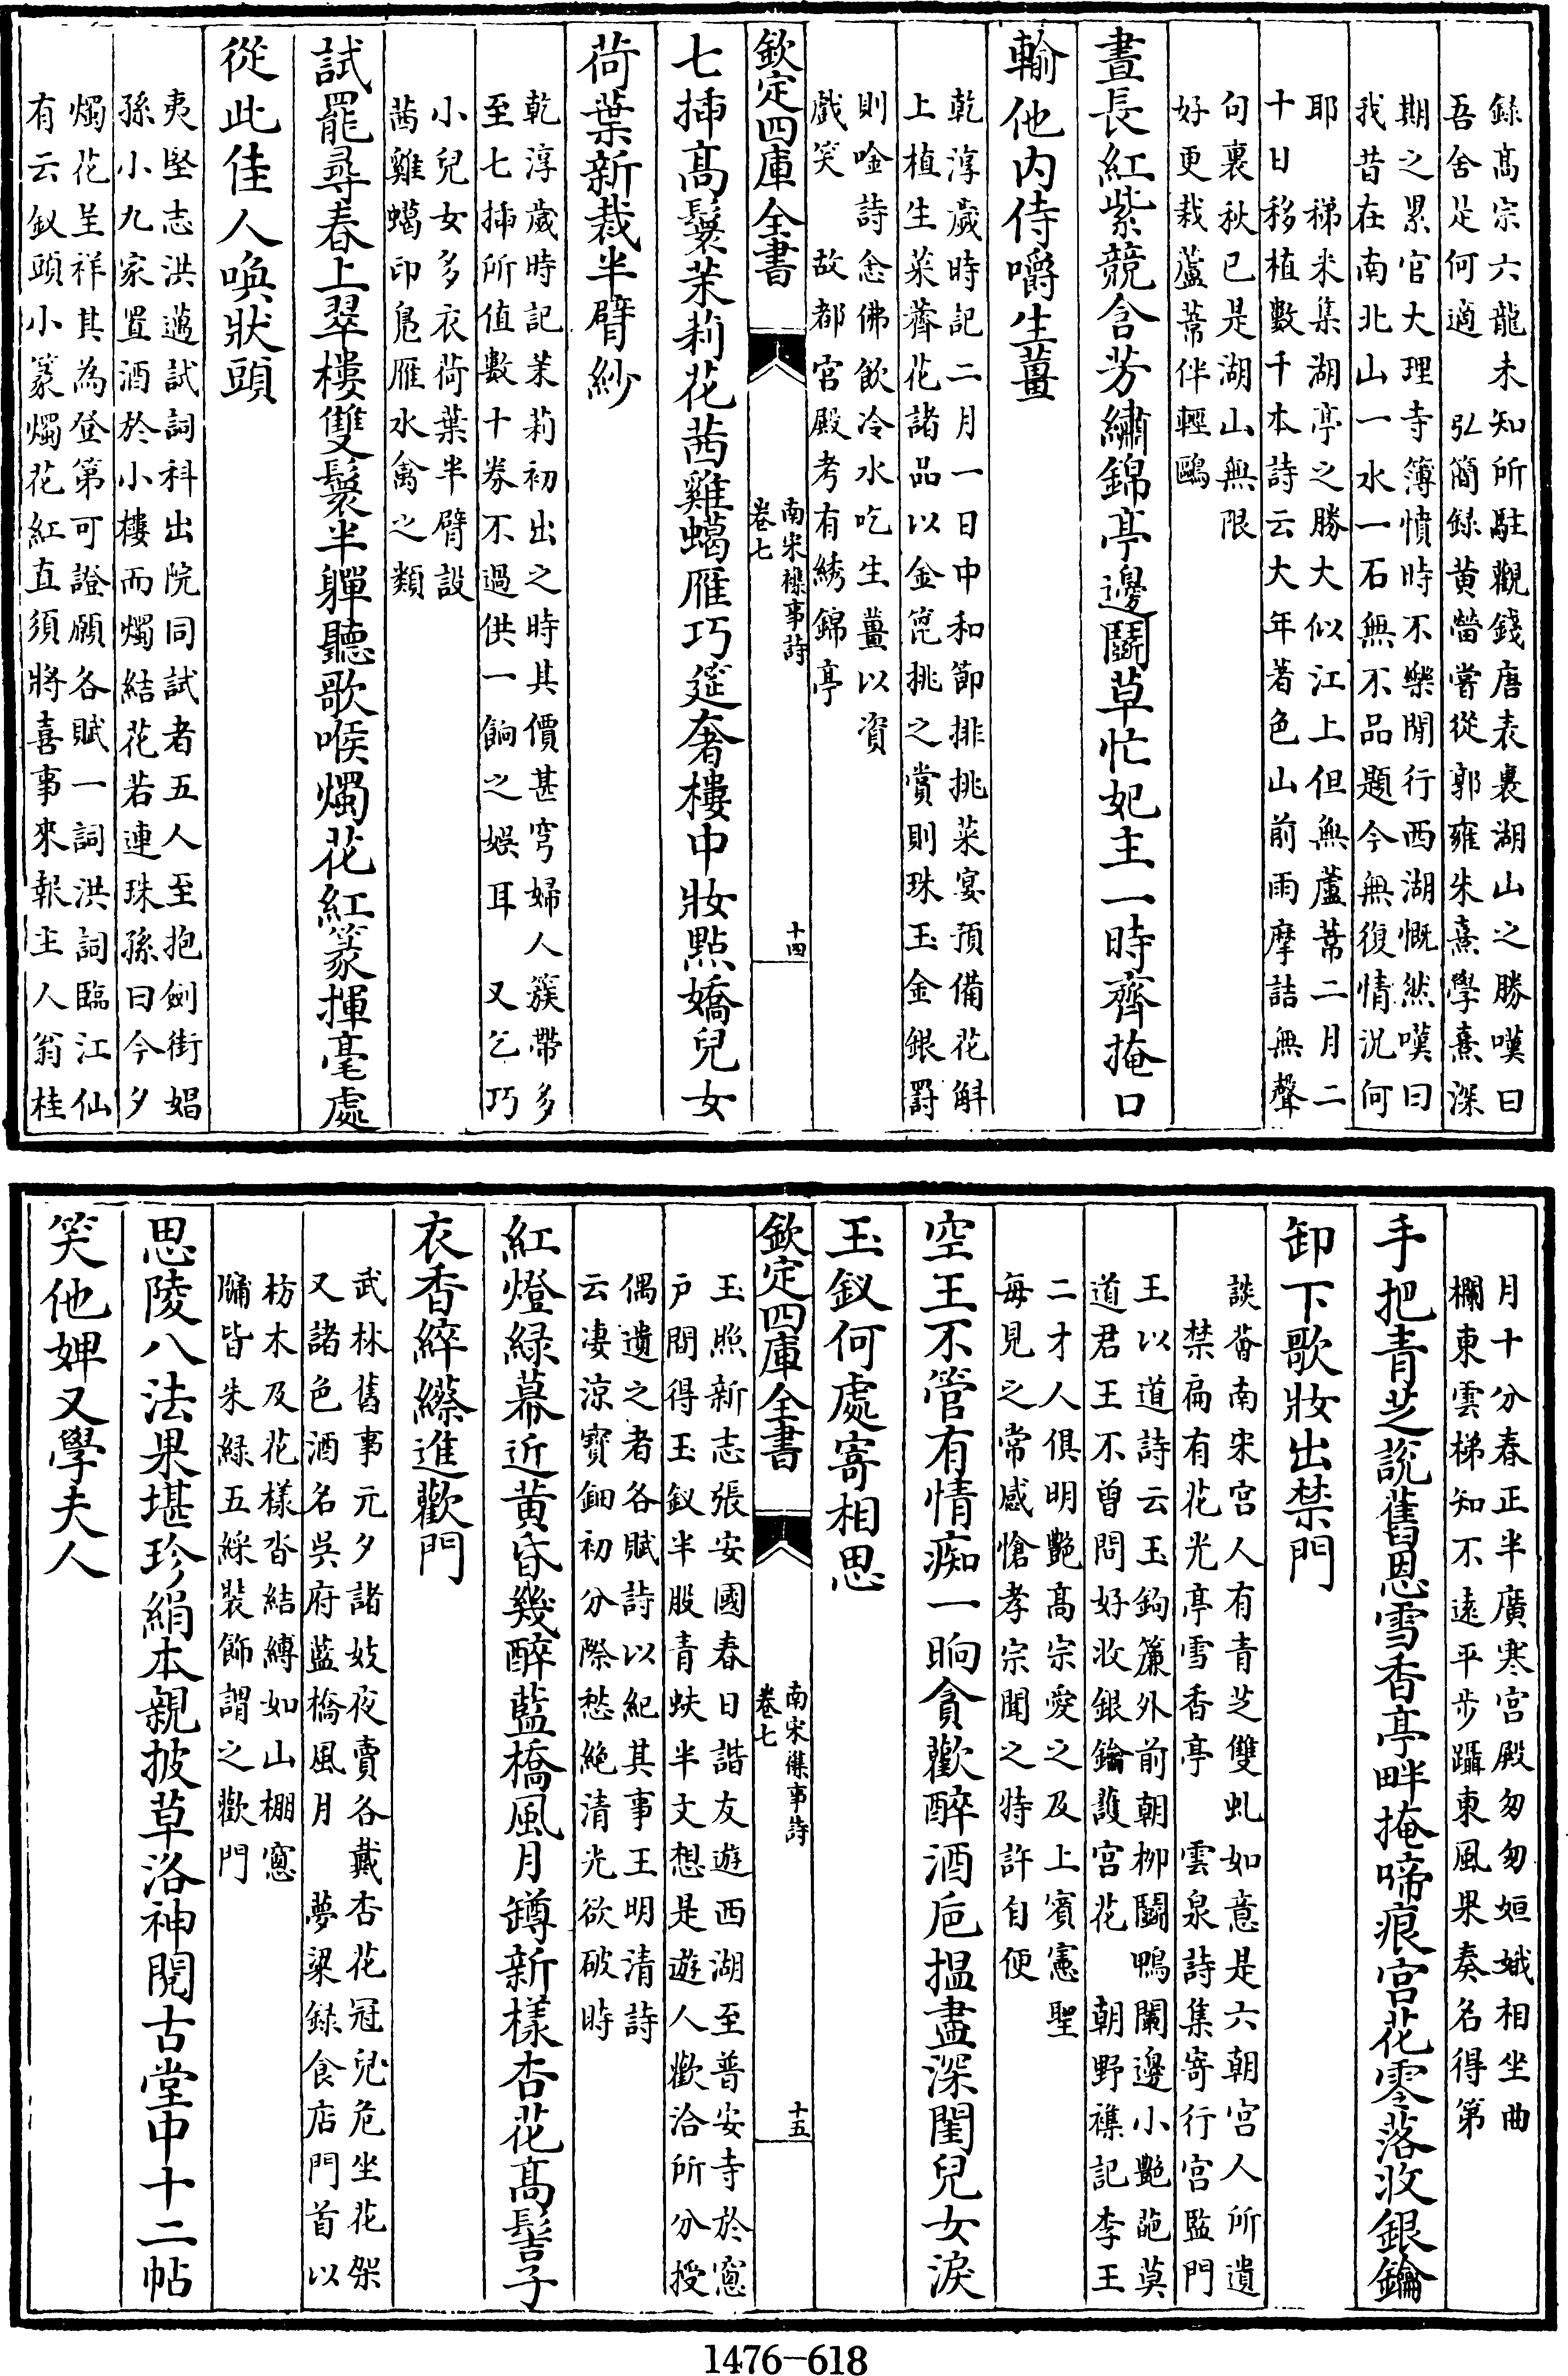 錄高宗六龍未知所駐觀錢唐表裏湖山之勝嘆曰
吾舍是何適　弘簡錄黄螀嘗從郭雍朱熹學熹深
期之累官大理寺簿憤時不樂閒行西湖慨然嘆曰
我昔在南北山一水一石無不品題今無復情況何
耶　稊米集湖亭之勝大似江上但無蘆葦二月二
十日移植數千本詩云大年著色山前雨摩詰無聲
句裏秋已是湖山無限
好更栽蘆葦伴輕鷗
晝長紅紫競含芳繡錦亭邊鬬草忙妃主一時齊掩口
輸他内侍嚼生薑
乾淳歲時記二月一日中和節排挑菜宴預備花斛
上植生菜薺花諸品以金箆挑之賞則珠玉金銀罰
則唫詩念佛飲冷水吃生薑以資
戲笑　故都宫殿考有綉錦亭
欽定四庫全書
南宋襍事詩
卷七
十四
七揷髙鬟茉莉花茜雞蠟雁巧筵奢樓中妝點嬌兒女
荷葉新裁半臂紗
乾淳歲時記茉莉初出之時其價甚穹婦人簇帶多
至七揷所值數十券不過供一餉之娯耳　又乞巧
小兒女多衣荷葉半臂設
茜雞蠟印鳬雁水禽之類
試罷尋春上翠樓雙鬟半嚲聽歌喉燭花紅篆揮毫處
從此佳人喚狀頭
夷堅志洪邁試詞科出院同試者五人至抱劍街娼
孫小九家置酒於小樓而燭結花若連珠孫曰今夕
燭花呈祥其為登第可證願各賦一詞洪詞臨江仙
有云釵頭小篆燭花紅直須將喜事來報主人翁桂
月十分春正半廣寒宫殿匆匆姮娥相坐曲
欄東雲梯知不遠平步躡東風果奏名得第
手把青芝說舊恩雪香亭畔掩啼痕宫花零落收銀鑰
卸下歌妝出禁門
談薈南宋宫人有青芝雙虬如意是六朝宫人所遺
禁扁有花光亭雪香亭　雲泉詩集寄行宫監門
王以道詩云玉鉤簾外前朝柳鬬鴨闌邊小艶葩莫
道君王不曾問好收銀鑰護宫花　朝野襍記李王
二才人俱明艷髙宗愛之及上賓憲聖
每見之常感愴孝宗聞之特許自便
空王不管有情痴一晌貪歡醉酒巵揾盡深閨兒女淚
玉釵何處寄相思
玉照新志張安國春日諧友遊西湖至普安寺於窻
戸間得玉釵半股青蚨半文想是遊人歡洽所分授
偶遺之者各賦詩以紀其事王明清詩
云凄涼寳鈿初分際愁絶清光欲破時
欽定四庫全書
南宋襍事詩
卷七
十五
紅燈緑幕近黄昏幾醉藍橋風月罇新樣杏花髙髻子
衣香綷縩進歡門
武林舊事元夕諸妓夜賣各戴杏花冠兒危坐花架
又諸色酒名吳府藍橋風月　夢粱錄食店門首以
枋木及花樣沓結縛如山棚窻
牖皆朱緑五綵裝飾謂之歡門
思陵八法果堪珍絹本親披草洛神閱古堂中十二帖
笑他婢又學夫人
1476-618